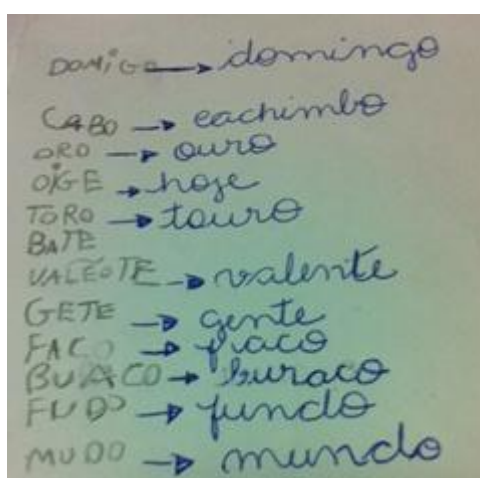 DOMIGO → domingo
CABO → cachimbo
ORO → ouro
OIGE → hoje
TORO → touro
BATE
VALEOTE → valente
GETE → gente
FACO → fraco
BUACO → buraco
FUDO → fundo
MUDO → mundo